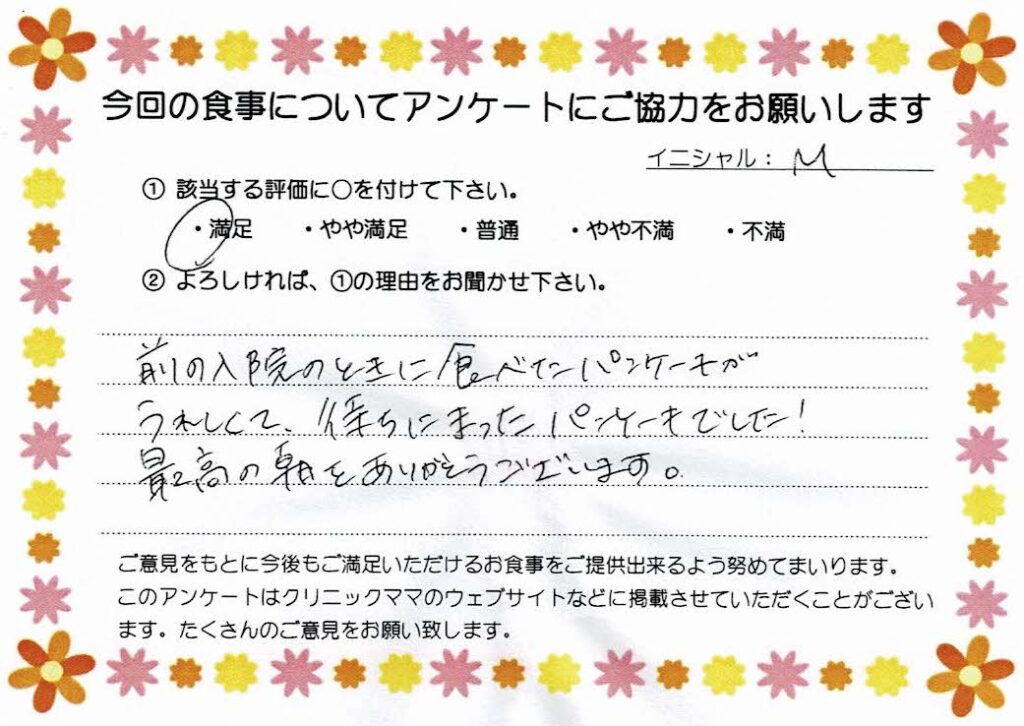 今回の食事についてアンケートにご協力をお願いします
イニシャル： M
① 該当する評価に○を付けて下さい。
・満足 ・やや満足 ・普通 ・やや不満 ・不満
② よろしければ、①の理由をお聞かせ下さい。
前の入院のときに食べたパンケーキが
うれしくて、待ちにまったパンケーキでした！
最高の朝をありがとうございます。
ご意見をもとに今後もご満足いただけるお食事をご提供出来るよう努めてまいります。
このアンケートはクリニックママのウェブサイトなどに掲載させていただくことがござい
ます。たくさんのご意見をお願い致します。